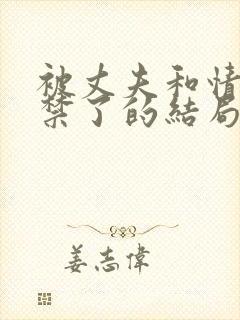 被丈夫和情
禁了的結局
姜志偉